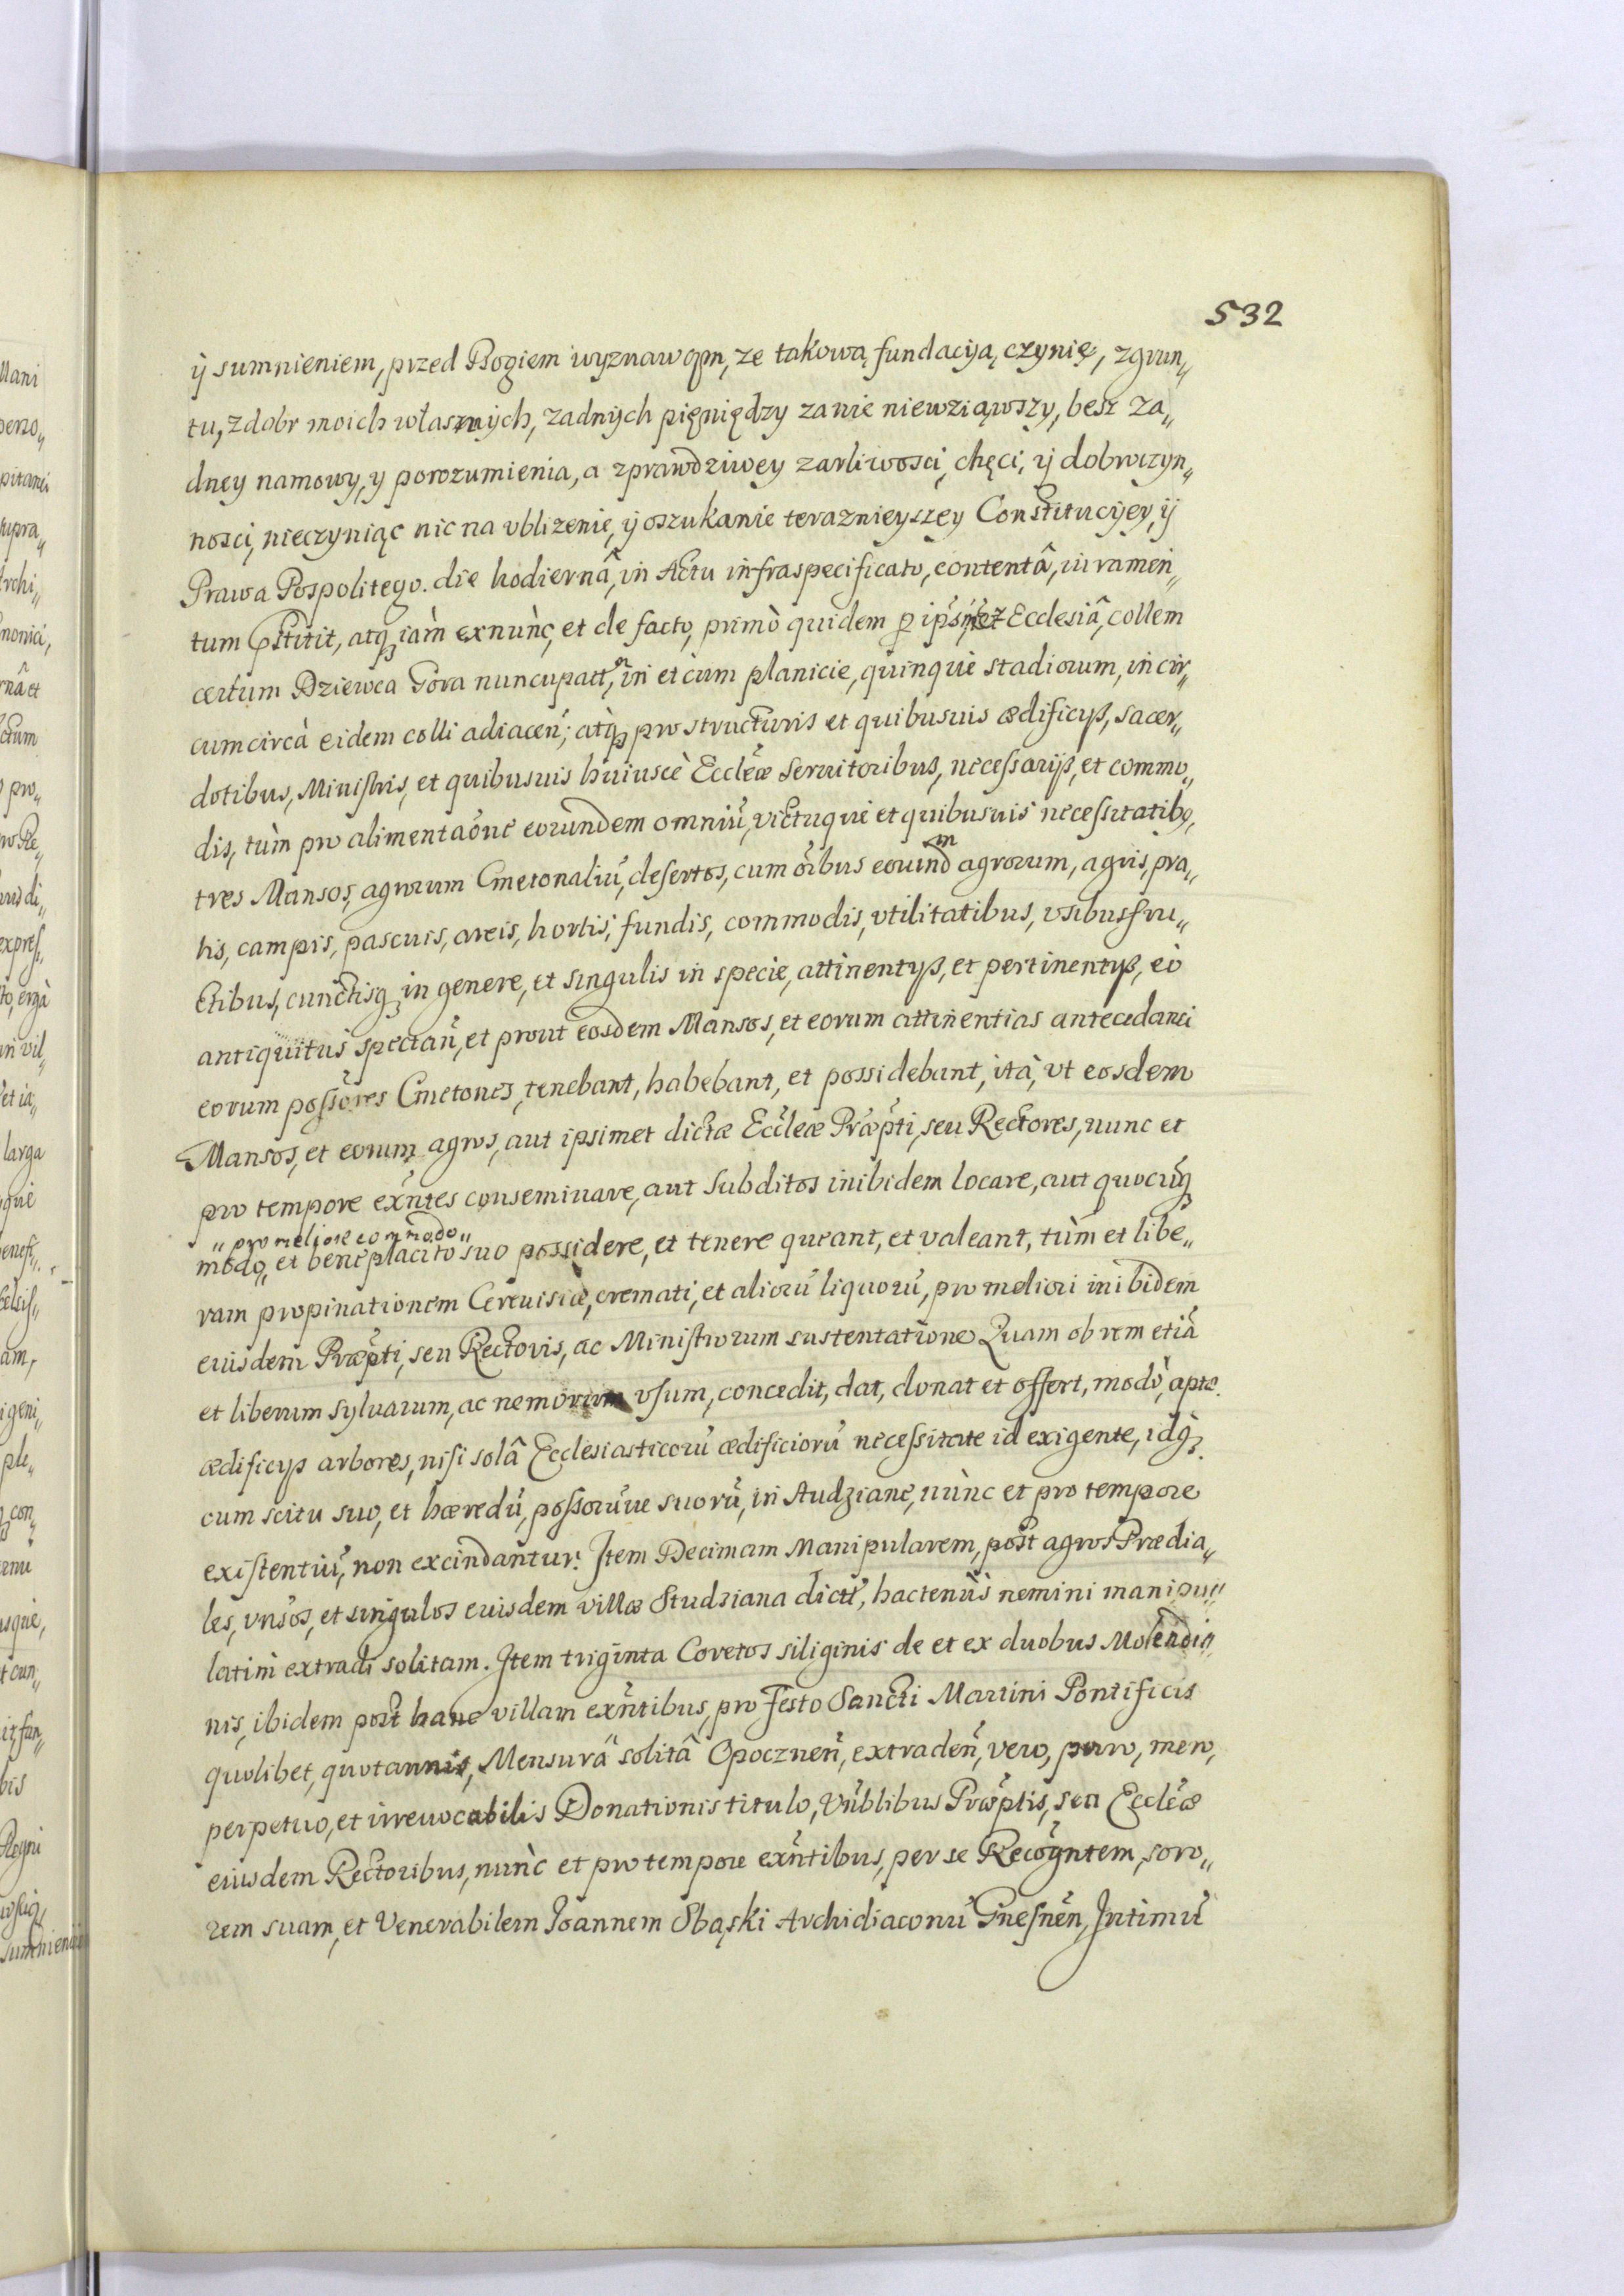 532
ÿ sumnieniem, przed Bogiem wyznawam, ze takową fundaciją czynię, zgrun„
tu, z dobr moich własznych, zadnÿch pięniędzy zanie niewziąwszy, besz za„
dney namowy, y porozumienia, a zprawdziwey zarliwosci, chęci, ÿ dobroczyn„
nosci, nieczyniąc nic na vblizenie, ÿ oszukanie teraznieyszey Constitucÿey, ÿ
Prawa Pospolitego. die hodiernâ, in Actu infraspecificato, contentâ, iuramen„
tum pstitit, atq iàm exnùnc, et de facto, primò quidem p ipsimet Ecclesiâ, collem
certum Dziewca Gora nuncupatt, in et cum planicie, quinque stadiorum, in cir„
cumcircà eidem colli adiacen; atq pro structuris et quibusuis ædificÿs, sacer„
dotibus, Ministris, et quibusuis huiuscè Eccleæ Seruitoribus, necessarÿs, et commo„
dis, tùm pro alimentaone eorundem omniu, victuque et quibusuis necessitatibq,
tres Mansos, agrorum Cmetonaliu, desertos, cum oibus eorundm agrorum, agris, pra„
tis, campis, pascuis, areis, hortis, fundis, commodis, vtilitatibus, vsibusfru„
ctibus, cunctisq in genere, et singulis in specie, attinentÿs, et pertinentÿs, eò
antiquitus spectan, et prout eosdem Mansos, et eorum attinentias antecedanei
eorum possores Cmetones, tenebant, habebant, et possidebant, ità, vt eosdem
Mansos, et eorum agros, aut ipsimet dictæ Eccleæ Præpti, seu Rectores, nunc et
pro tempore exntes conseminare, aut subditos inibidem locare, aut quocuq
„pro meliore commodo„
modo, et beneplacito suo possidere, et tenere queant, et valeant, tùm et libe„
ram propinationem Cereuisiæ, cremati, et alioru liquoru, pro meliori inibidem
euisdem Præpti, seu Rectoris, ac Ministrorum sustentatione Quam ob rem etiâ
et liberum syluarum, ac nemorum vsum, concedit, dat, donat et offert, modò, aptæ
ædificÿs arbores, nisi solâ Ecclesiasticoru ædificioru necessitate id exigente, idq
cum scitu suo, et hæredu, possoruue suoru, in Audziane, nùnc et pro tempore
existentiu, non excindantur. Item Decimam Manipularem, post agros Prædia„
les, vnsos, et singulos euisdem villæ Studziana dict, hactenùs nemini manipu„
latim extradi solitam. Item triginta Coretos siliginis de et ex duobus Molendin„
nis, ibidem post hanc villam exntibus, pro Festo Sancti Martini Pontificis
quolibet, quotannis, Mensurâ solitâ Opocznen, extraden, vero, puro, mero,
perpetuo, et irreuocabilis Donationis titulo, Vnblibus Præptis, seu Eccleæ
eiusdem Rectoribus, nùnc et pro tempore exntibus, per se Recogntem, soro„
rem suam, et Venerabilem Joannem Sbąski Archidiaconu Gnesnen, Intimu